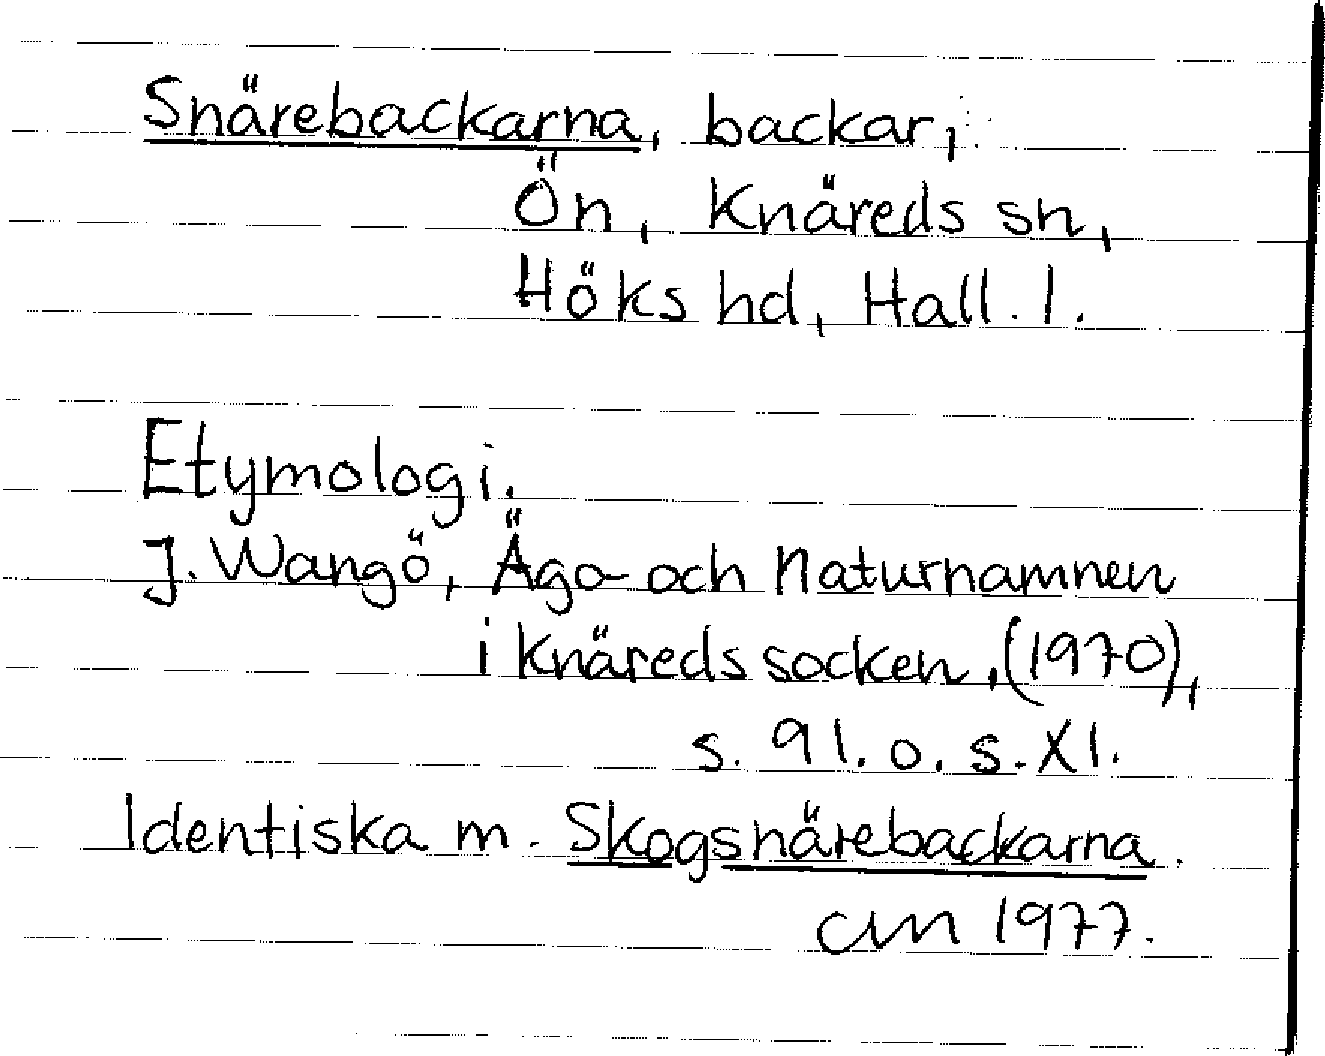 Snärebackarna, backar,
Ön, Knäreds sn,
Höks hd, Hall. l.
Etymologi.
J. Wangö, Ägo- och Naturnamnen
i Knäreds socken, (1970),
s. 91. o. s. XI.
Identiska m. Skogsnärebackarna.
CM 1977.